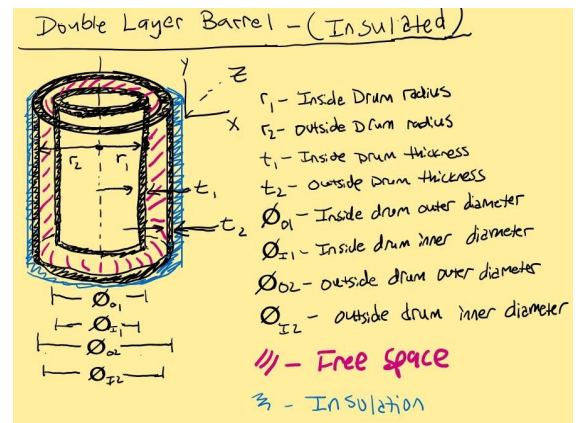 Double Layer Barrel - (Insulated)
Y
Z
X
r₂
r₁
t₁
t₂
r₁ - Inside Drum radius
r₂ - outside Drum radius
t₁ - Inside Drum thickness
t₂ - outside Drum thickness
Ø₀₁ - Inside drum outer diameter
Ø_I1 - Inside drum inner diameter
Ø₀₂ - outside drum outer diameter
Ø_I2 - outside drum inner diameter
/// - Free space
- Insulation
Ø₀₁
Ø_I1
Ø₀₂
Ø_I2